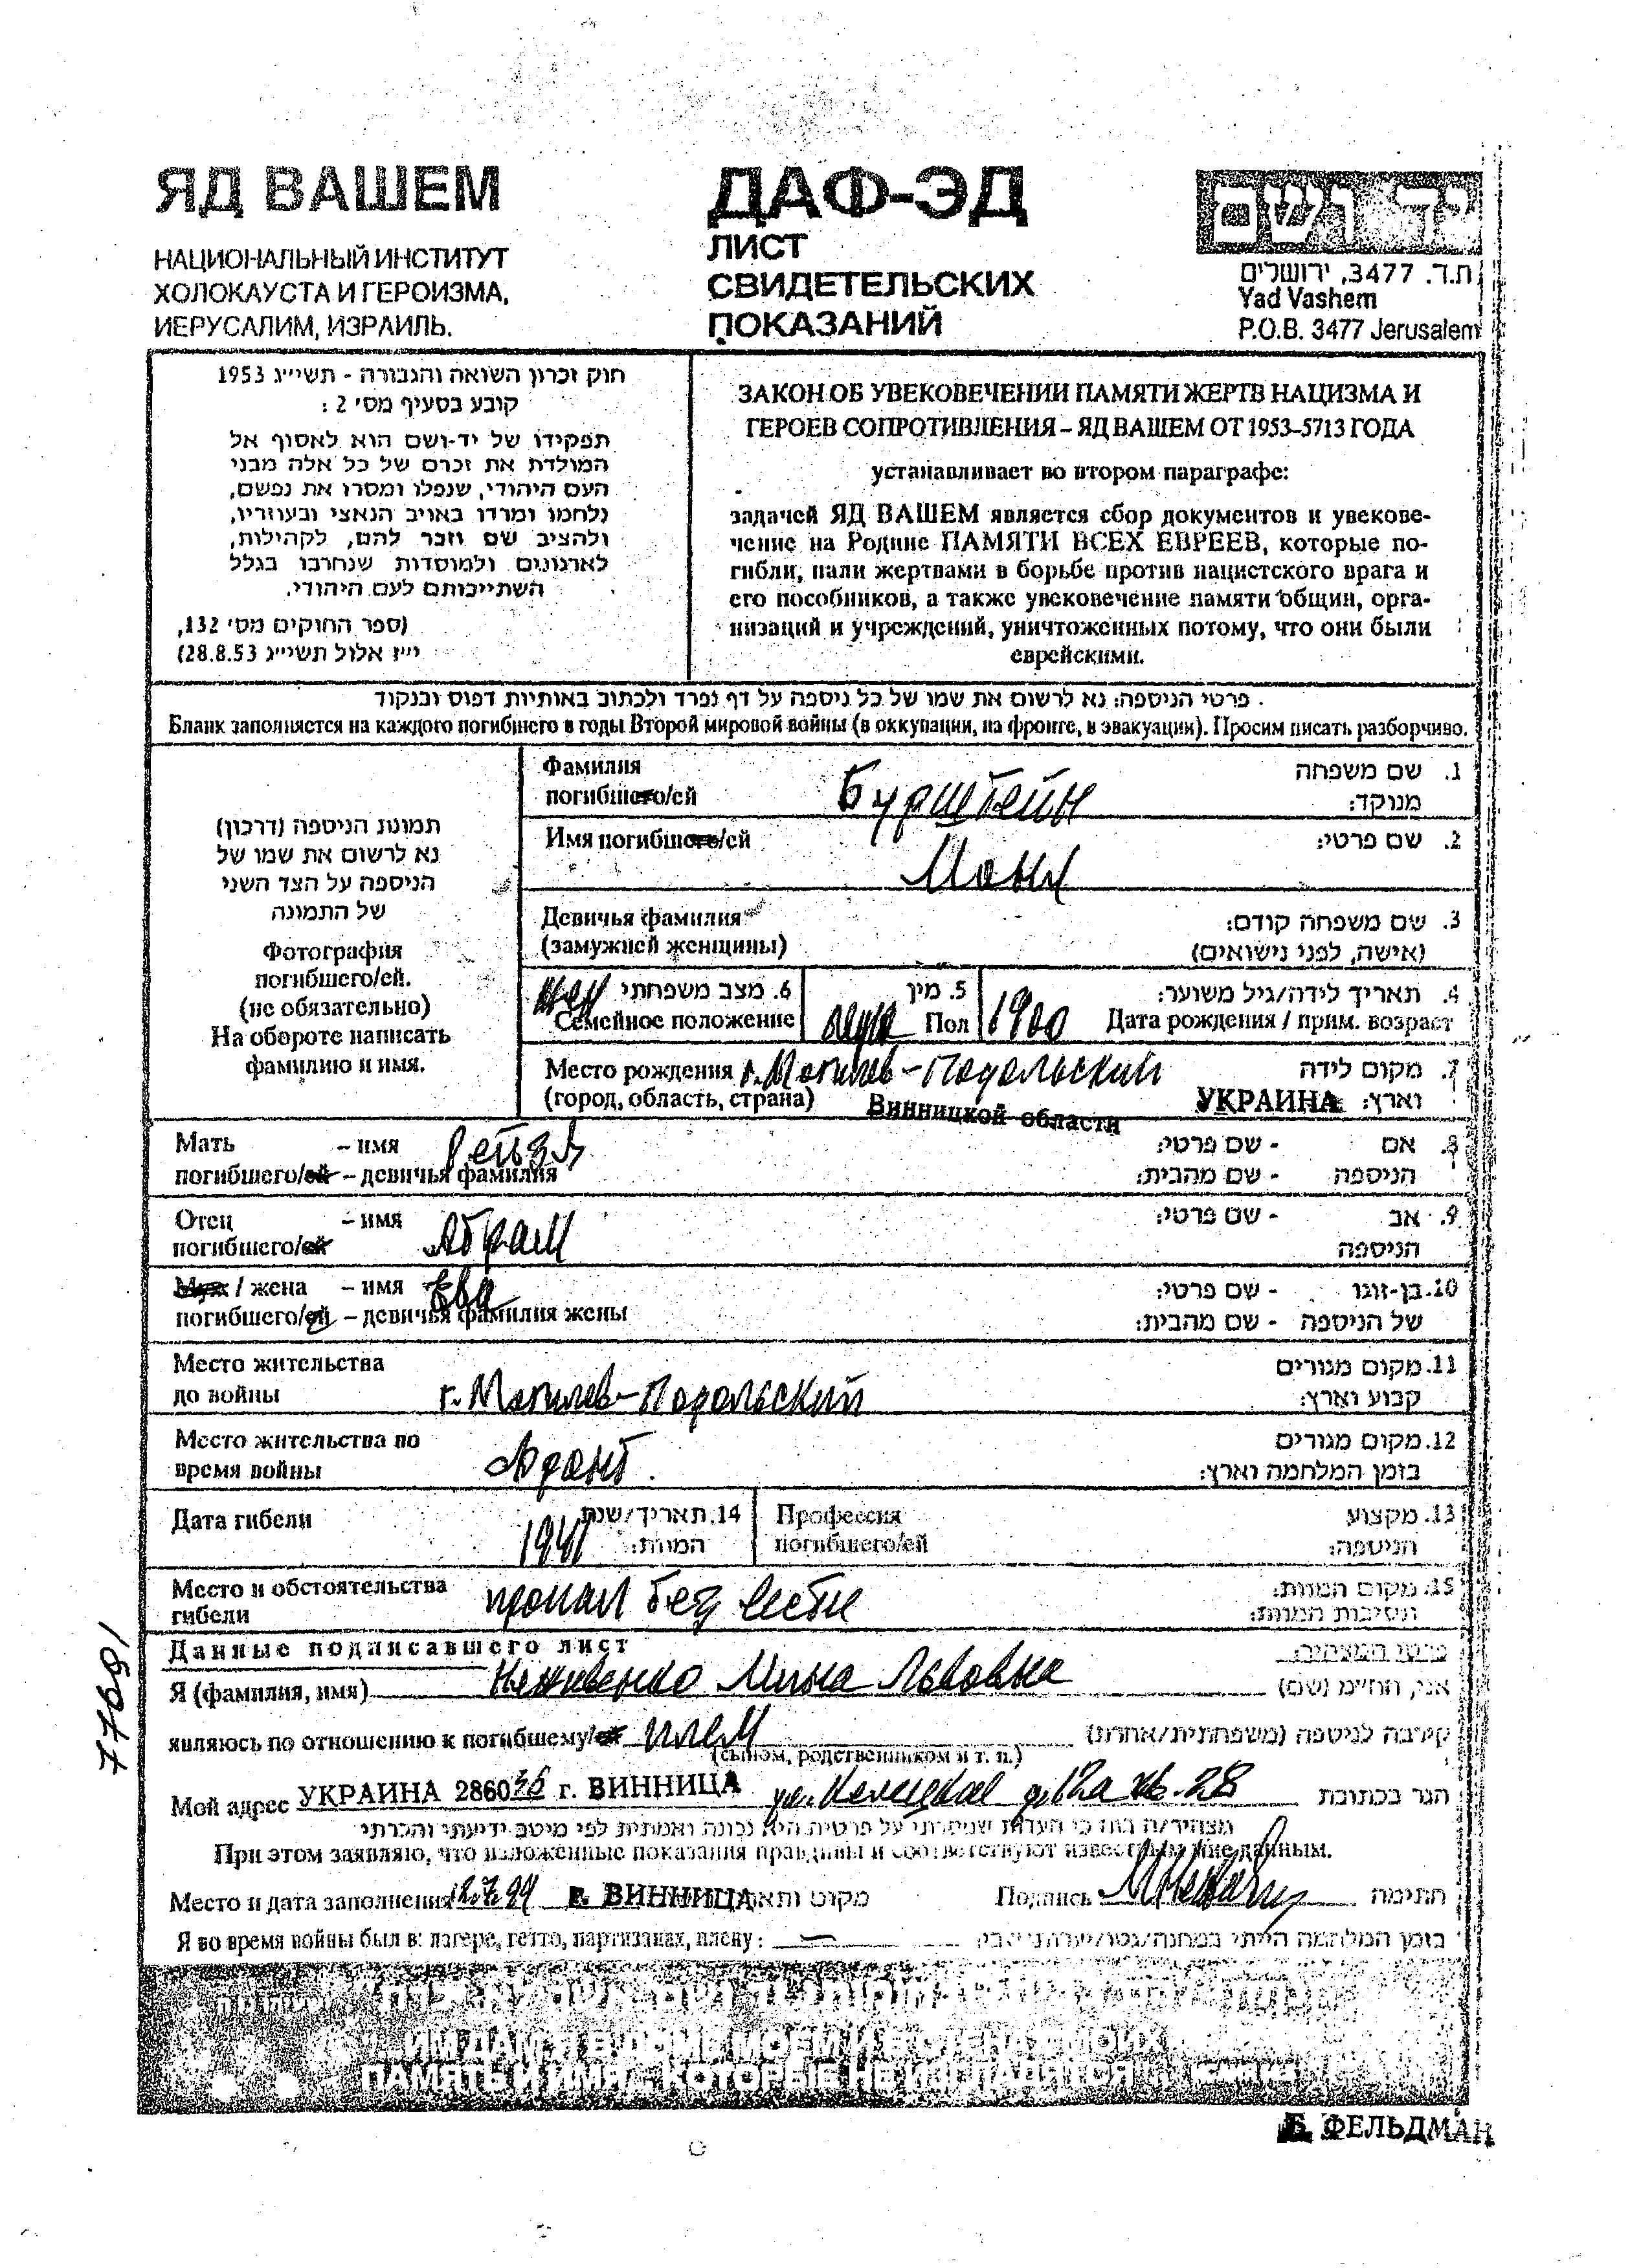 ЯД ВАШЕМ
НАЦИОНАЛЬНЫЙ ИНСТИТУТ
ХОЛОКАУСТА И ГЕРОИЗМА,
ИЕРУСАЛИМ, ИЗРАИЛЬ.
ДАФ-ЭД
ЛИСТ
СВИДЕТЕЛЬСКИХ
ПОКАЗАНИЙ
יד ושם
ת.ד. 3477, ירושלים
Yad Vashem
P.O.B. 3477 Jerusalem
חוק זכרון השואה והגבורה - תשי״ג 1953
קובע בסעיף מס׳ 2 :
תפקידו של יד-ושם הוא לאסוף אל
המולדת את זכרם של כל אלה מבני
העם היהודי, שנפלו ומסרו את נפשם,
נלחמו ומרדו באויב הנאצי ובעוזריו,
ולהציב שם וזכר להם, לקהילות,
לארגונים ולמוסדות שנחרבו בגלל
השתייכותם לעם היהודי.
(ספר החוקים מס׳ 132,
י״ז אלול תשי״ג 28.8.53)
ЗАКОН ОБ УВЕКОВЕЧЕНИИ ПАМЯТИ ЖЕРТВ НАЦИЗМА И
ГЕРОЕВ СОПРОТИВЛЕНИЯ – ЯД ВАШЕМ ОТ 1953–5713 ГОДА
устанавливает во втором параграфе:
задачей ЯД ВАШЕМ является сбор документов и увекове-
чение на Родине ПАМЯТИ ВСЕХ ЕВРЕЕВ, которые по-
гибли, пали жертвами в борьбе против нацистского врага и
его пособников, а также увековечение памяти общин, орга-
низаций и учреждений, уничтоженных потому, что они были
еврейскими.
פרטי הניספה: נא לרשום את שמו של כל ניספה על דף נפרד ולכתוב באותיות דפוס ובנקוד.
Бланк заполняется на каждого погибшего в годы Второй мировой войны (в оккупации, на фронте, в эвакуации). Просим писать разборчиво.
תמונת הניספה (דרכון)
נא לרשום את שמו של
הניספה על הצד השני
של התמונה
Фотография
погибшего/ей.
(не обязательно)
На обороте написать
фамилию и имя.
Фамилия 1. שם משפחה
погибшего/ей Бурштейн מנוקד:
Имя погибшего/ей 2. שם פרטי:
Моны
Девичья фамилия 3. שם משפחה קודם:
(замужней женщины) (אישה, לפני נישואים)
жен 6. מצב משפחתי 5. מין 4. תאריך לידה/גיל משוער:
Семейное положение муж Пол 1900 Дата рождения / прим. возраст
Место рождения г. Могилев-Подольский 7. מקום לידה
(город, область, страна) Винницкой области УКРАИНА וארץ:
Мать – имя Рейзл 8. אם - שם פרטי:
погибшего/ей – девичья фамилия הניספה - שם מהבית:
Отец – имя Абрам 9. אב - שם פרטי:
погибшего/ей הניספה
Муж / жена – имя Ева 10. בן-זוגו - שם פרטי:
погибшего/ей – девичья фамилия жены של הניספה - שם מהבית:
Место жительства 11. מקום מגורים
до войны г. Могилев-Подольский קבוע וארץ:
Место жительства по 12. מקום מגורים
время войны фронт. בזמן המלחמה וארץ:
Дата гибели 1941 14. תאריך/שנת Профессия 13. מקצוע
המוות: погибшего/ей הניספה:
Место и обстоятельства пропал без вести 15. מקום המוות:
гибели ונסיבות המוות:
Данные подписавшего лист
Я (фамилия, имя) Мина Львовна אני, הח״מ (שם)
являюсь по отношению к погибшему/ей плем קירבה לניספה (משפחתית/אחרת)
(сыном, родственником и т. п.)
Мой адрес УКРАИНА 286036 г. ВИННИЦА ул. Келецкая д. 12а кв. 28 הגר בכתובת
מצהיר/ה בזה כי העדות שמסרתי על פרטיה היא נכונה ואמתית לפי מיטב ידיעתי והכרתי
При этом заявляю, что изложенные показания правдивы и соответствуют известным мне данным.
Место и дата заполнения г. ВИННИЦА מקום ותאריך Подпись חתימה
Я во время войны был в: лагере, гетто, партизанах, плену: –
ИМ ДАМ Я В ДОМЕ МОЕМ И В СТЕНАХ МОИХ
ПАМЯТЬ И ИМЯ... КОТОРЫЕ НЕ ИЗГЛАДЯТСЯ
Б. ФЕЛЬДМАН
77691